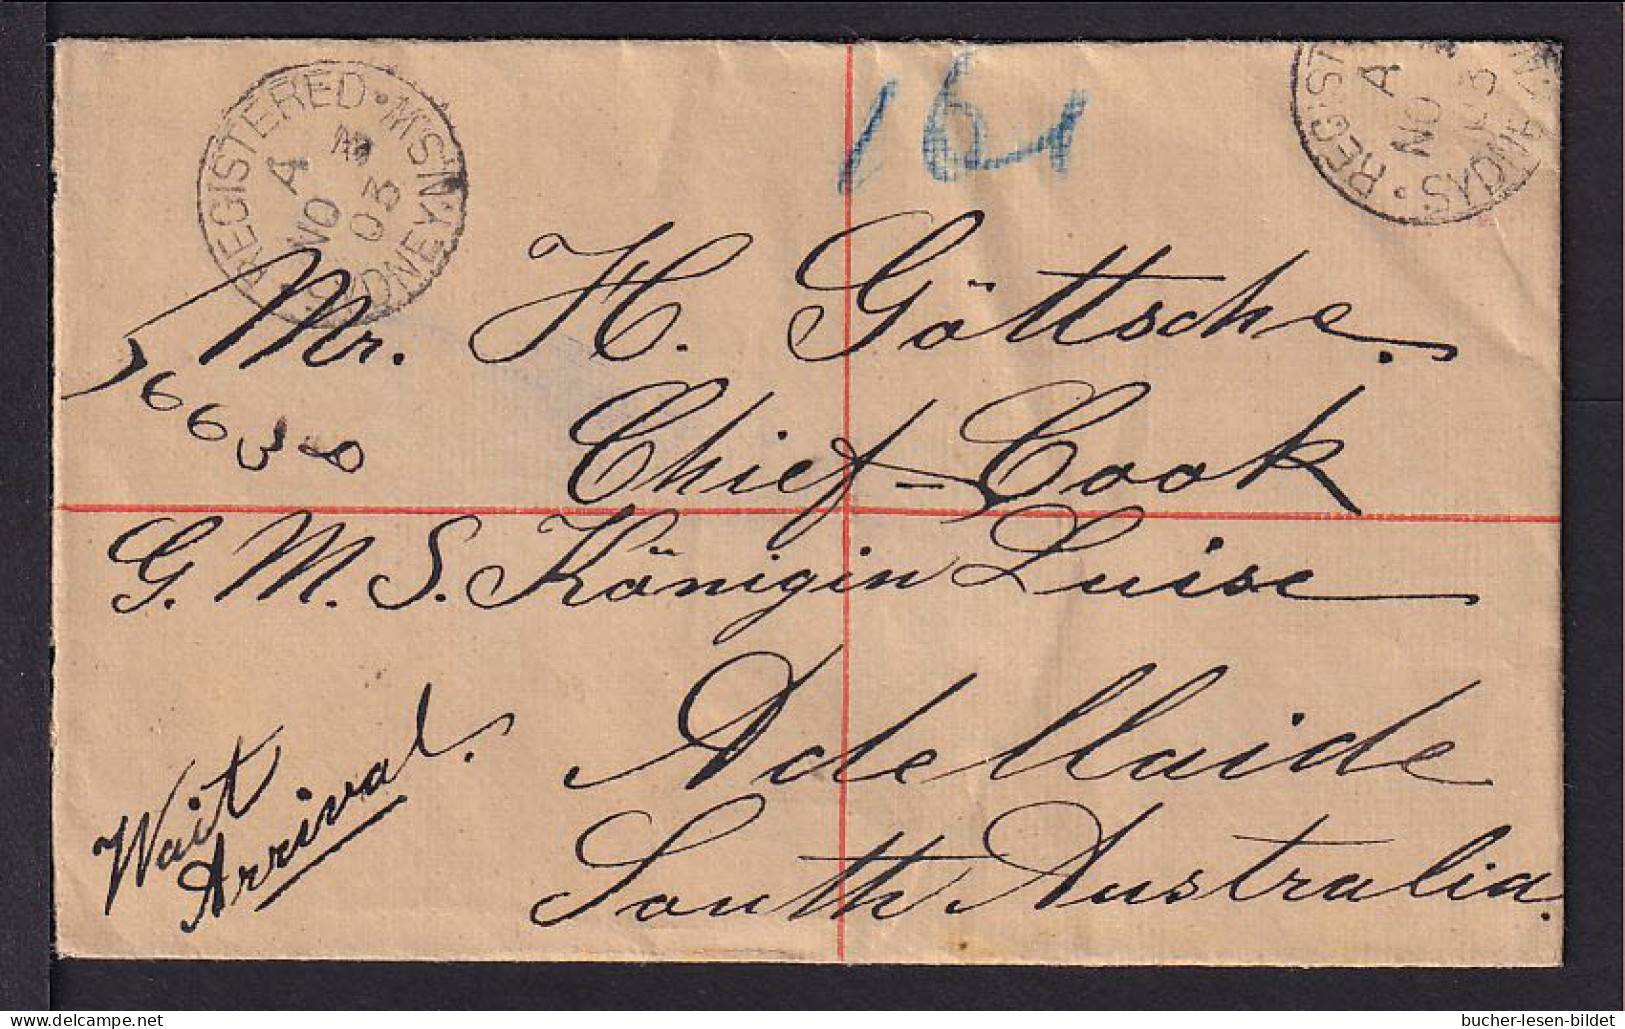 REGISTERED · M'S·N·
SYDNEY
A
NO
03
161
REGIST
A
NO
03
SYDNEY
Mr. H. Göttsche.
6638
Chief-Cook
G. M. S. Königin Luise
Adellaide
South Australia.
Wait
Arrival.
Delcampe.net
bucher-lesen-bildet